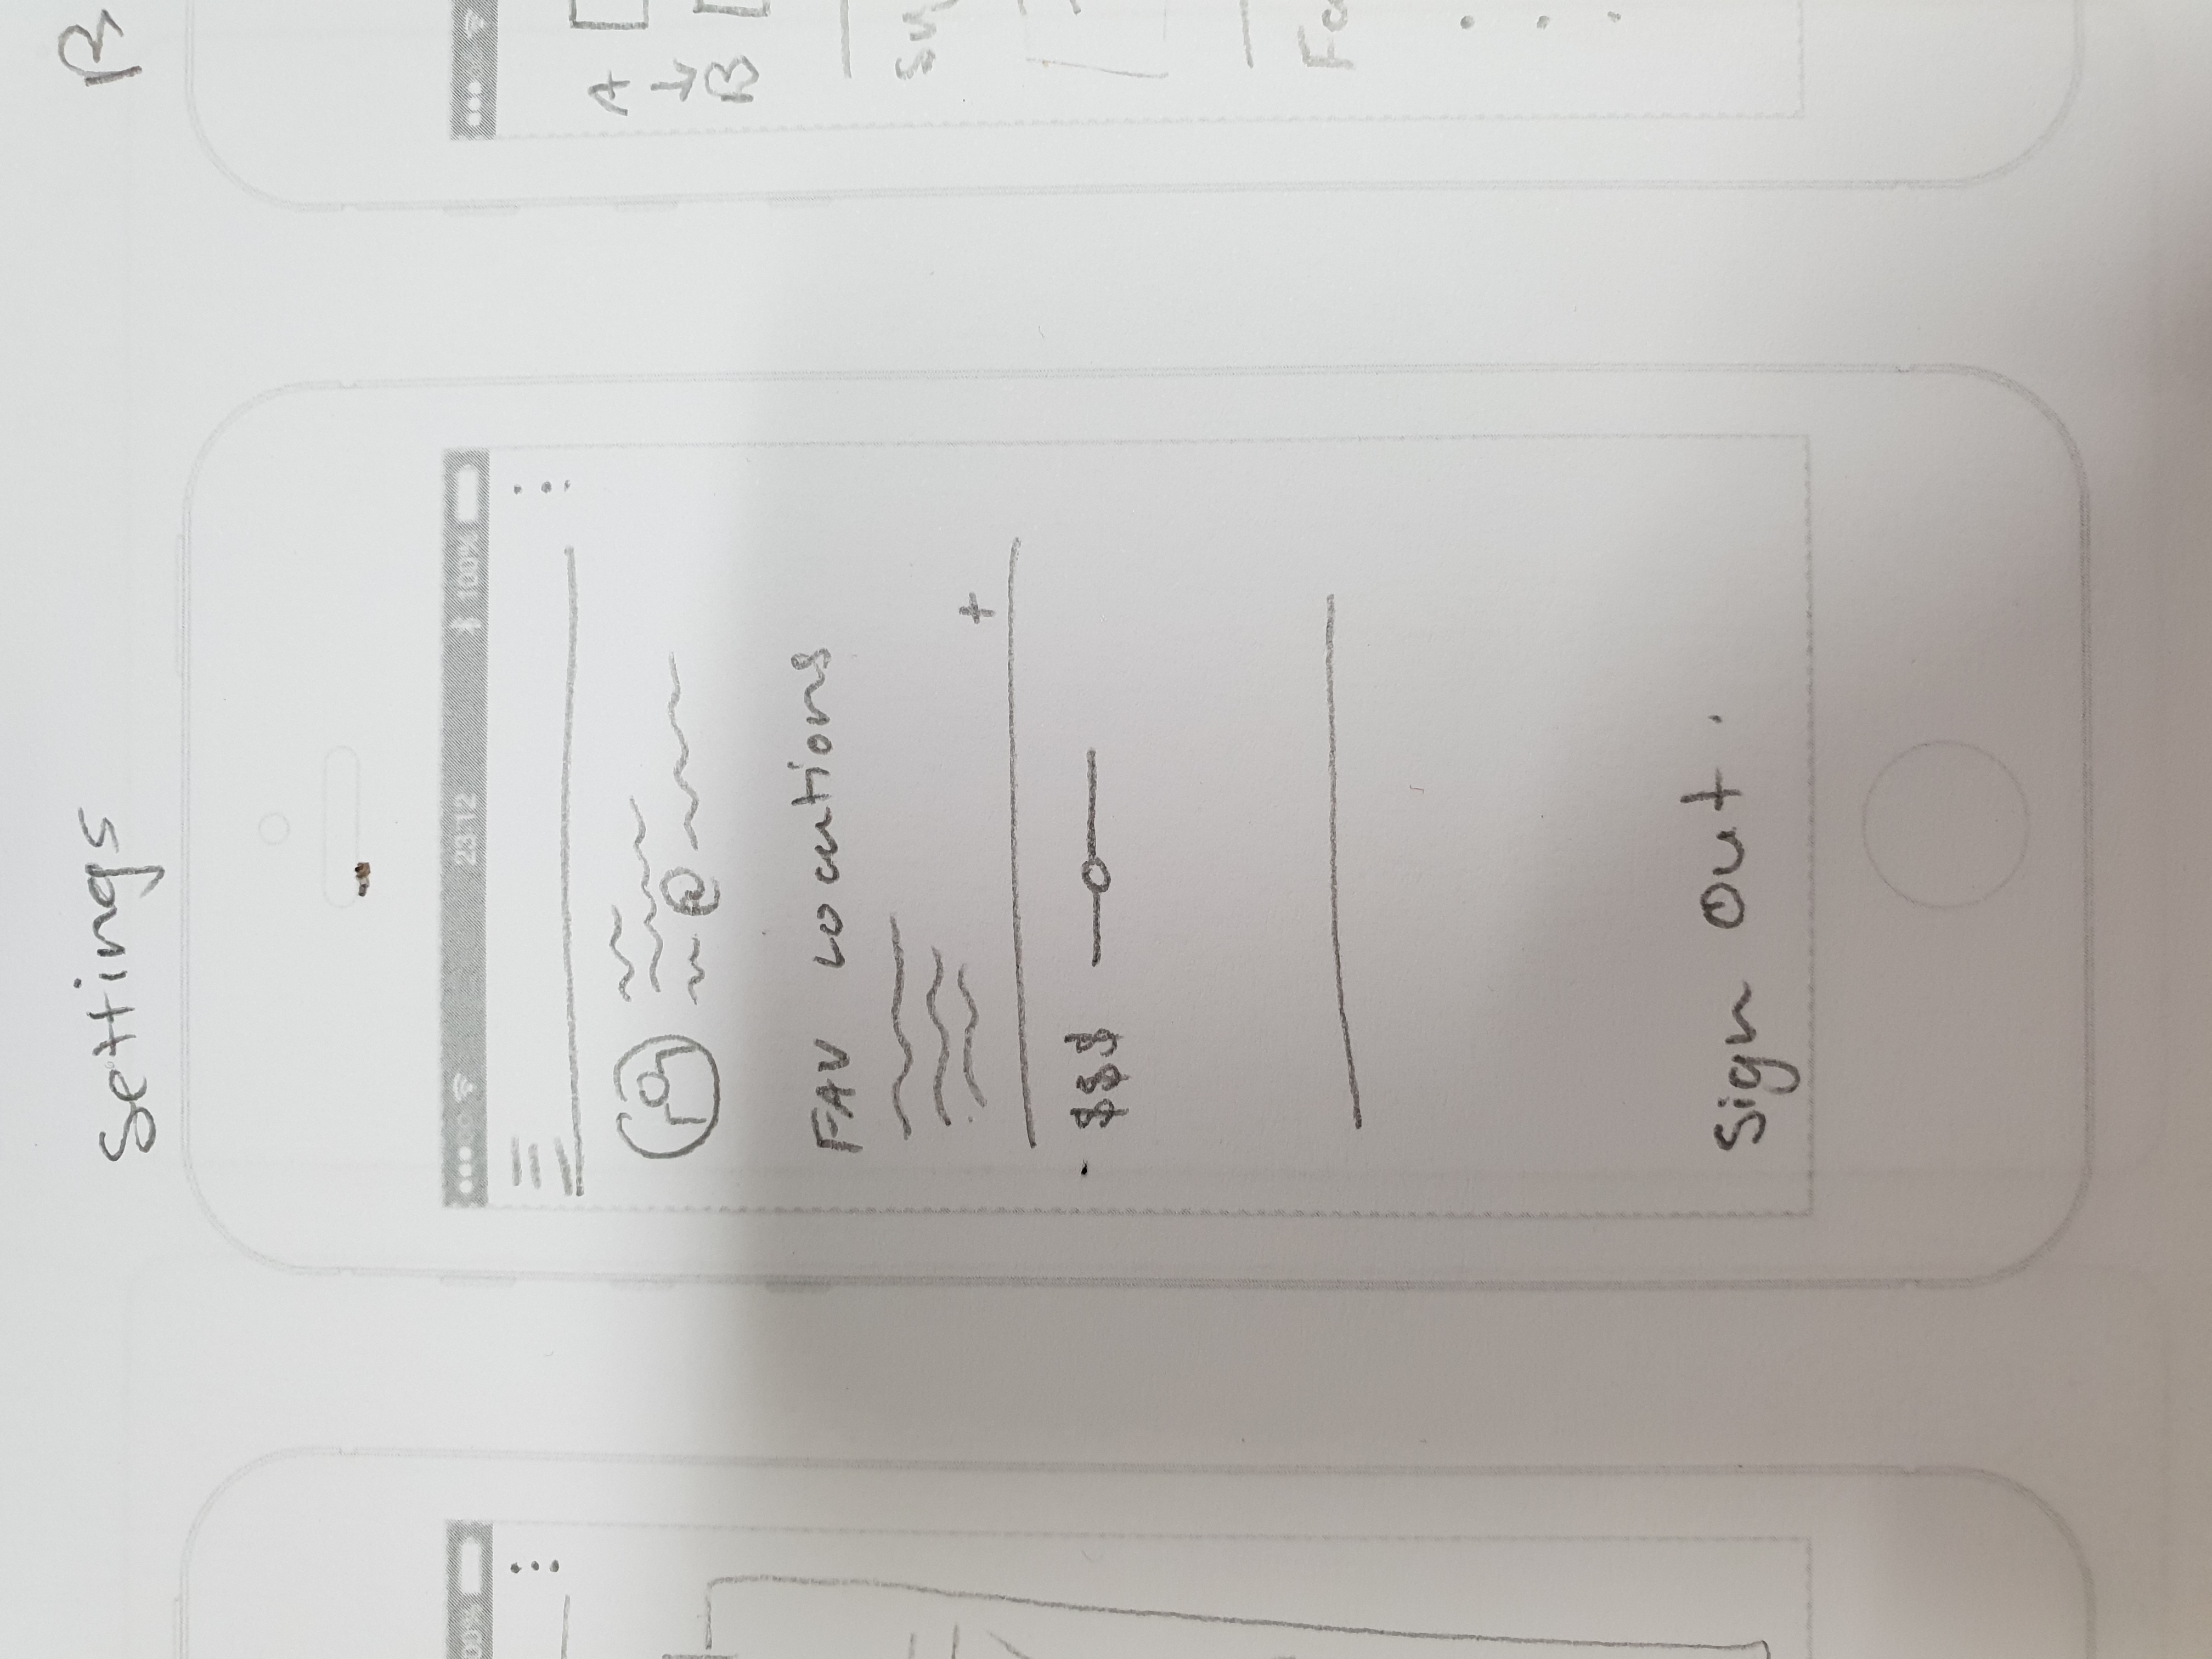 Settings
B
00%
23:12 100%
A
B
FAV Locations
@
+
$$$
Sign Out.